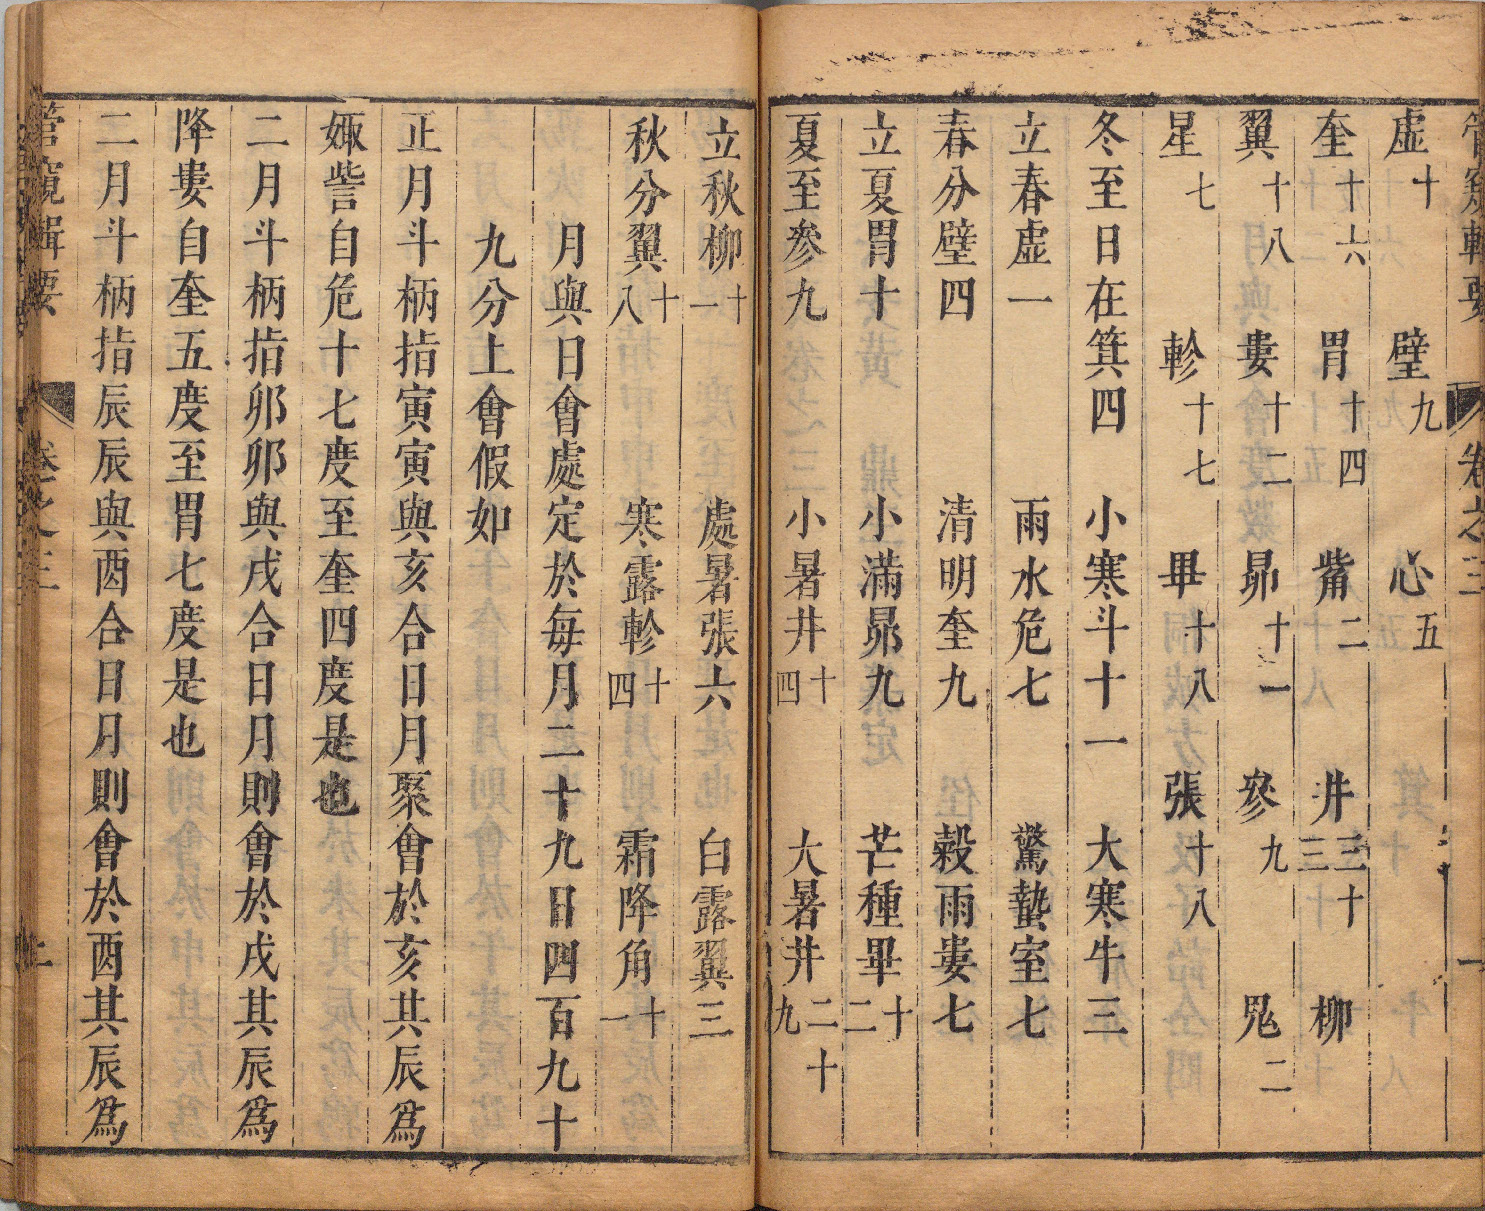 管窺輯要 卷之三 一
虛十 壁九 心五 箕十
奎十六 胃十四 觜二 井三十三 柳
翼十八 婁十二 昴十一 參九 鬼二
星七 軫十七 畢十八 張十八
冬至日在箕四 小寒斗十一 大寒牛三
立春虛一 雨水危七 驚蟄室七
春分壁四 清明奎九 穀雨婁七
立夏胃十 小滿昴九 芒種畢十二
夏至參九 小暑井十四 大暑井二十九
立秋柳十一 處暑張六 白露翼三
秋分翼十八 寒露軫十四 霜降角十一
月與日會處定於每月二十九日四百九十
九分上會假如
正月斗柄指寅寅與亥合日月聚會於亥其辰爲
娵訾自危十七度至奎四度是也
二月斗柄指卯卯與戌合日月則會於戌其辰爲
降婁自奎五度至胃七度是也
二月斗柄指辰辰與酉合日月則會於酉其辰爲
管窺輯要 卷之三